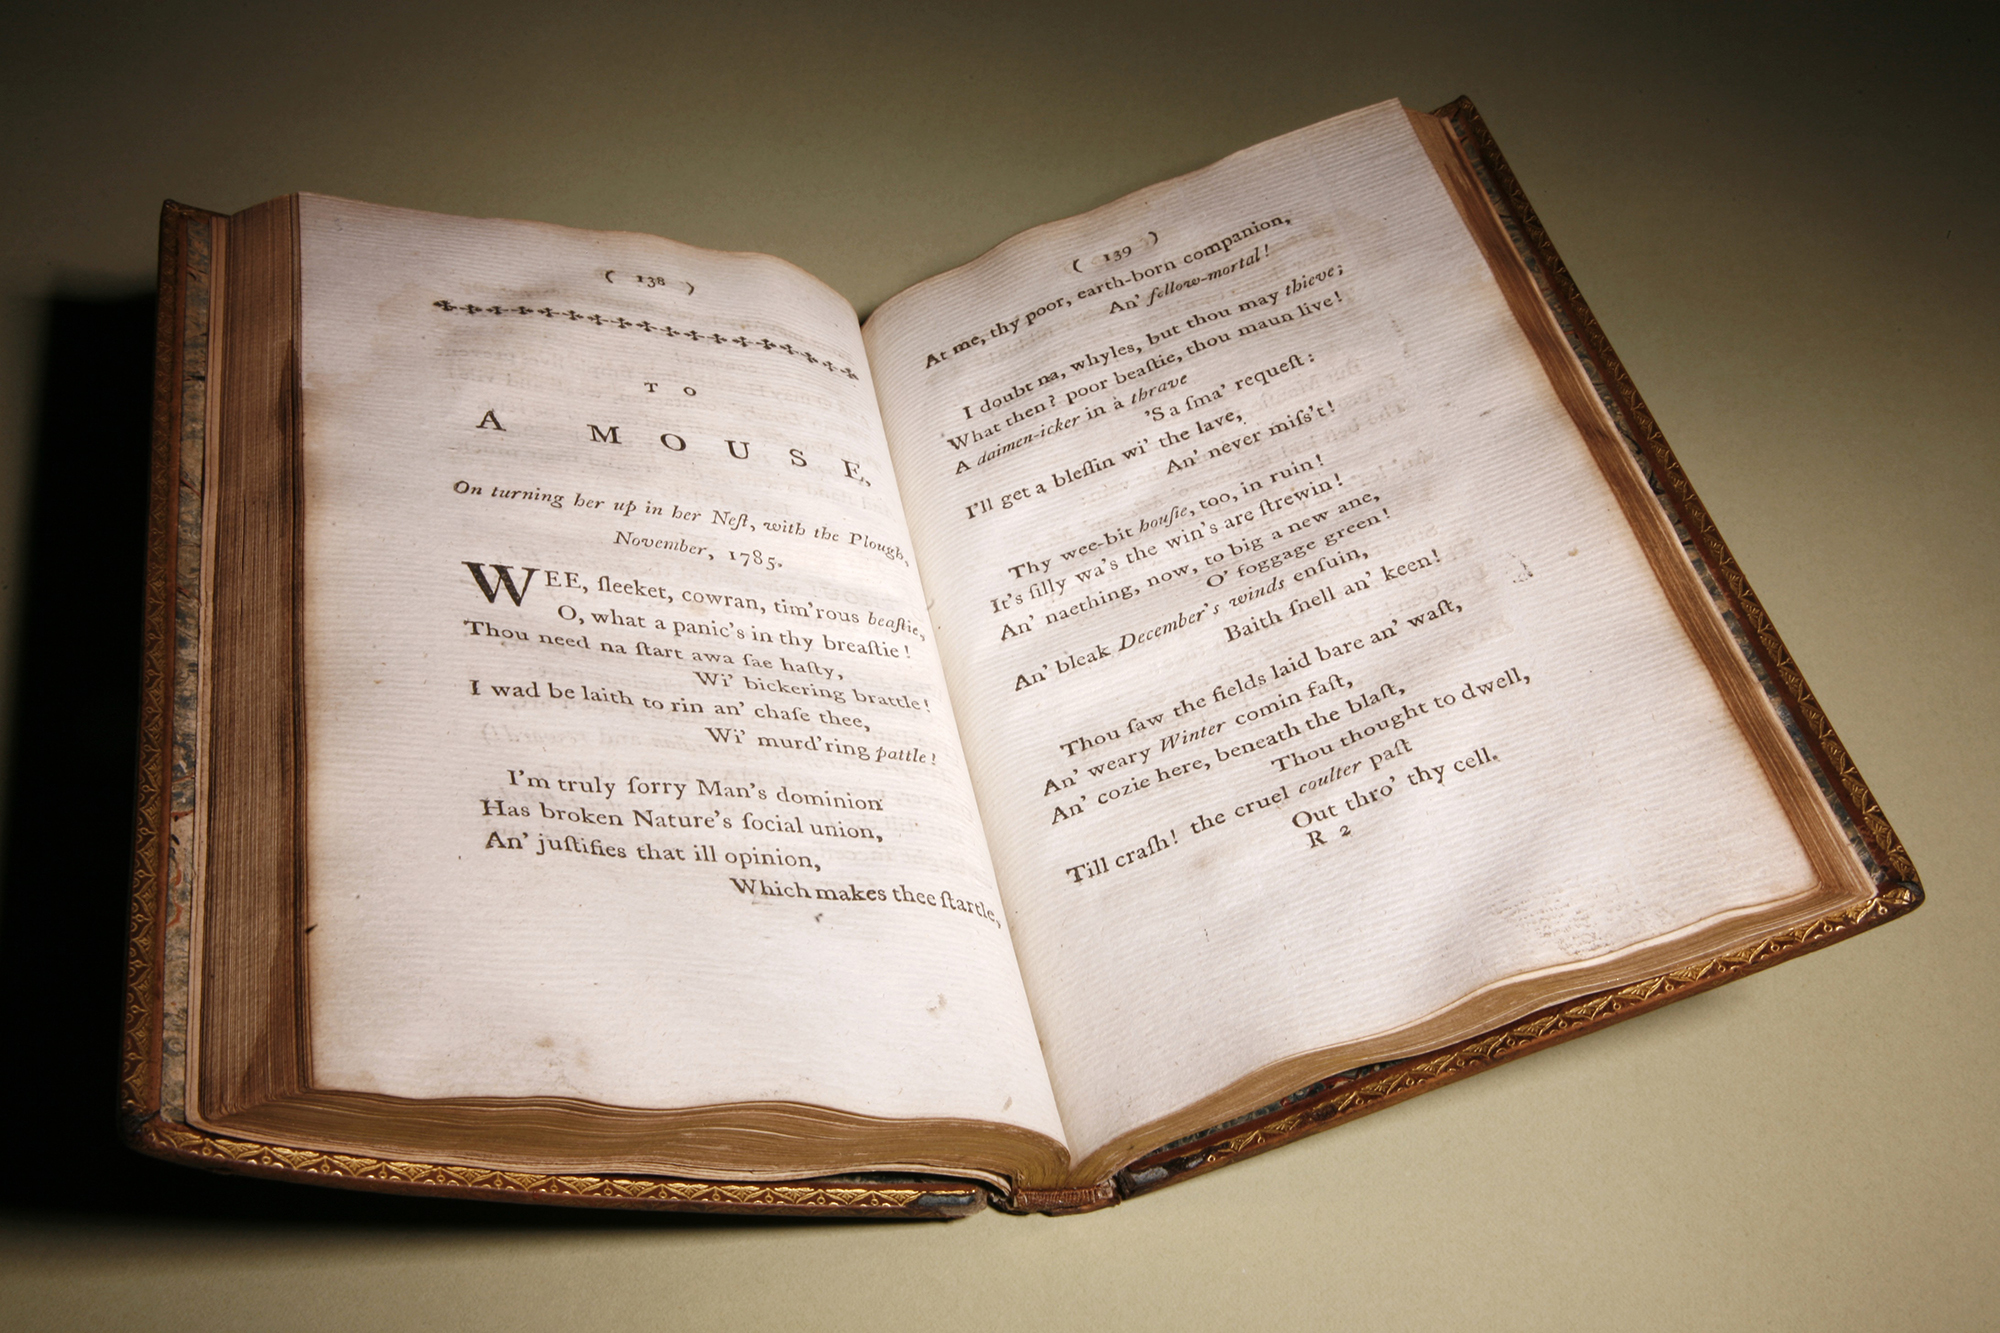 ( 138 )
TO
A MOUSE,
On turning her up in her Neſt, with the Plough,
November, 1785.
WEE, ſleeket, cowran, tim'rous beaſtie,
O, what a panic's in thy breaſtie!
Thou need na ſtart awa ſae haſty,
Wi' bickering brattle!
I wad be laith to rin an' chaſe thee,
Wi' murd'ring pattle!
I'm truly ſorry Man's dominion
Has broken Nature's ſocial union,
An' juſtifies that ill opinion,
Which makes thee ſtartle,
( 139 )
At me, thy poor, earth-born companion,
An' fellow-mortal!
I doubt na, whyles, but thou may thieve;
What then? poor beaſtie, thou maun live!
A daimen-icker in a thrave
'S a ſma' requeſt:
I'll get a bleſſin wi' the lave,
An' never miſs't!
Thy wee-bit houſie, too, in ruin!
It's ſilly wa's the win's are ſtrewin!
An' naething, now, to big a new ane,
O' foggage green!
An' bleak December's winds enſuin,
Baith ſnell an' keen!
Thou ſaw the fields laid bare an' waſt,
An' weary Winter comin faſt,
An' cozie here, beneath the blaſt,
Thou thought to dwell,
Till craſh! the cruel coulter paſt
Out thro' thy cell.
R 2